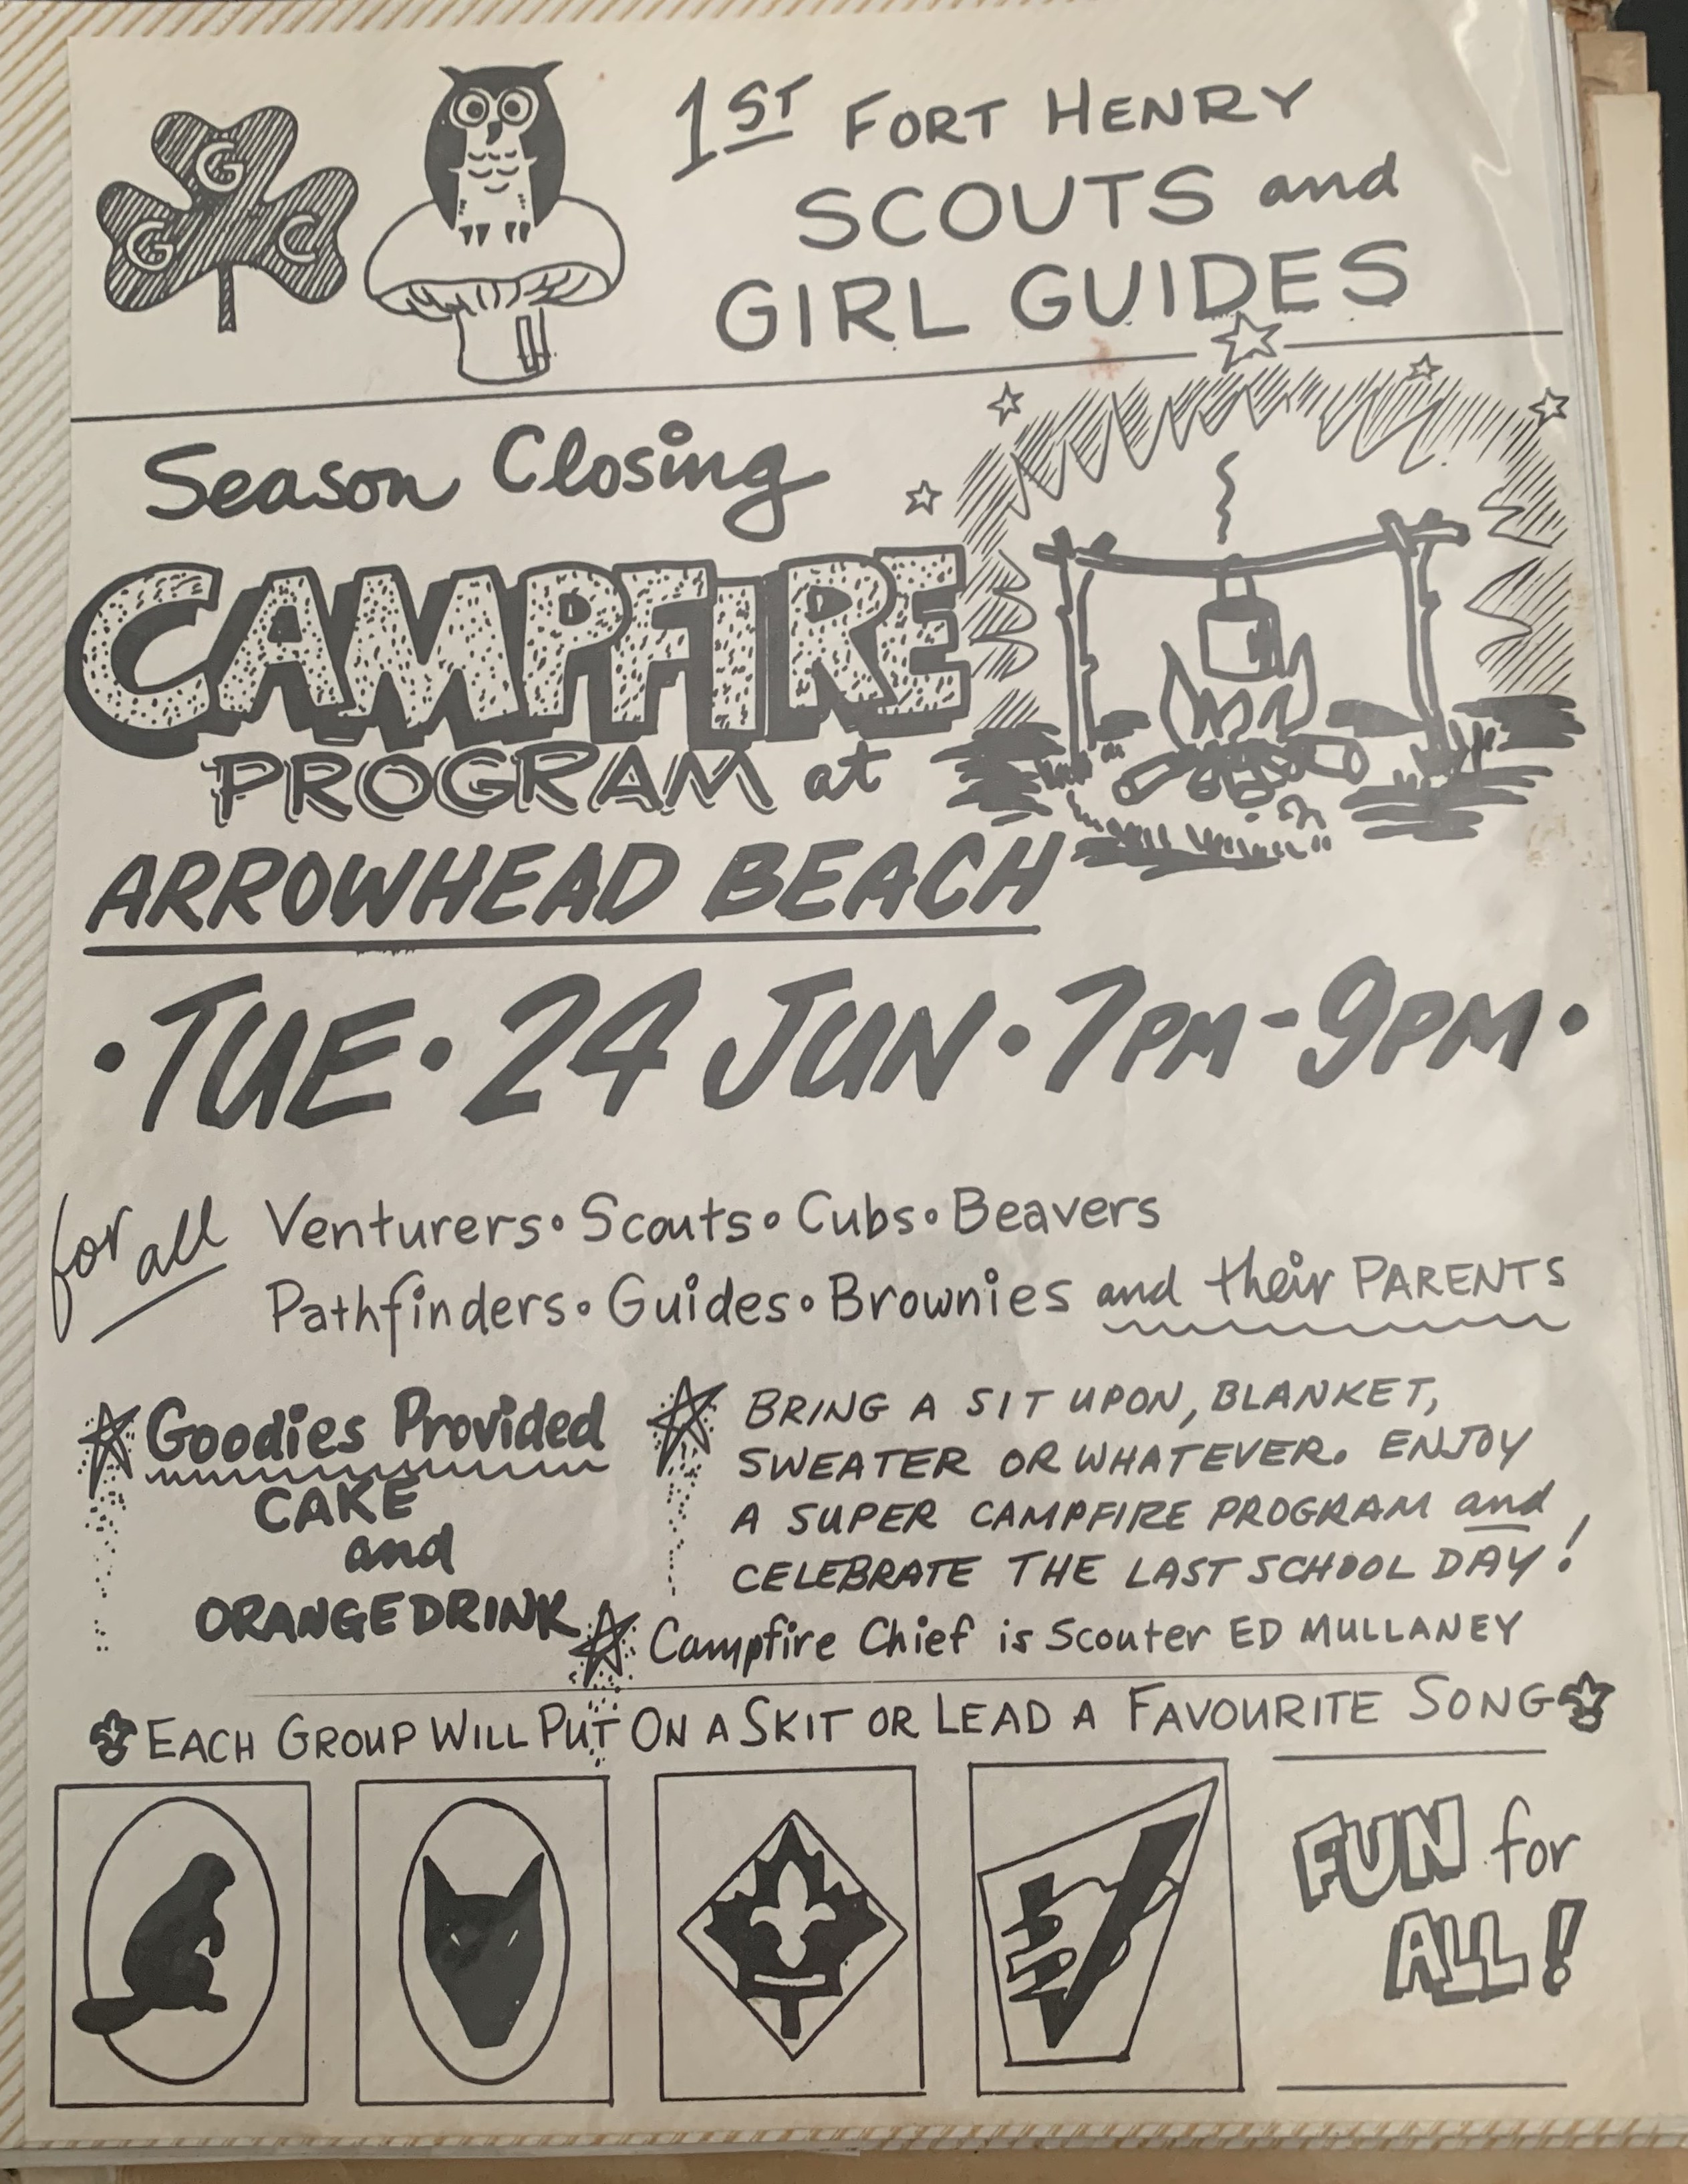 G
G C
1ST FORT HENRY
SCOUTS and
GIRL GUIDES
Season Closing
CAMPFIRE
PROGRAM at
ARROWHEAD BEACH
• TUE • 24 JUN • 7PM - 9PM •
for all Venturers • Scouts • Cubs • Beavers
Pathfinders • Guides • Brownies and their PARENTS
Goodies Provided
CAKE
and
ORANGE DRINK
BRING A SIT UPON, BLANKET,
SWEATER OR WHATEVER. ENJOY
A SUPER CAMPFIRE PROGRAM and
CELEBRATE THE LAST SCHOOL DAY!
Campfire Chief is Scouter ED MULLANEY
EACH GROUP WILL PUT ON A SKIT OR LEAD A FAVOURITE SONG
FUN for
ALL!